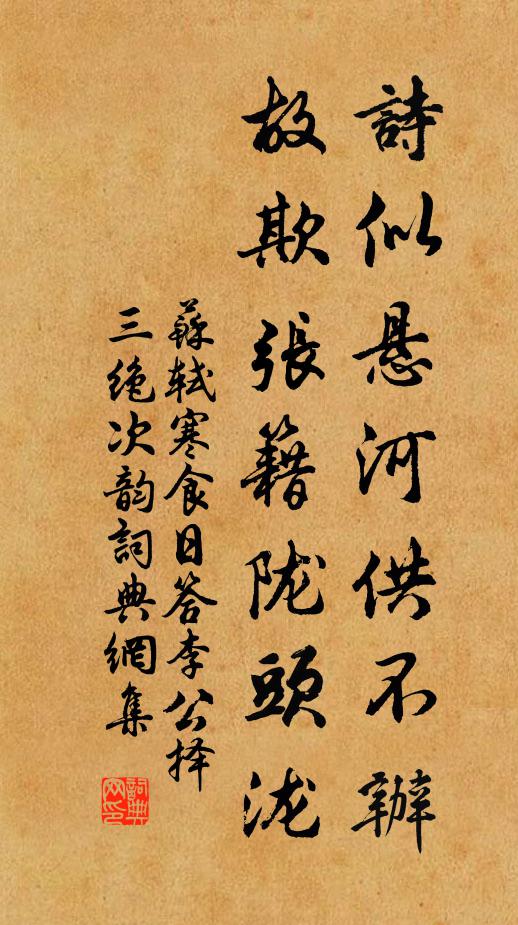 詩似悬河供不辦
故欺張籍陇頭泷
蘇轼寒食日答李公择
三绝次韵詞典網集
詞典網印